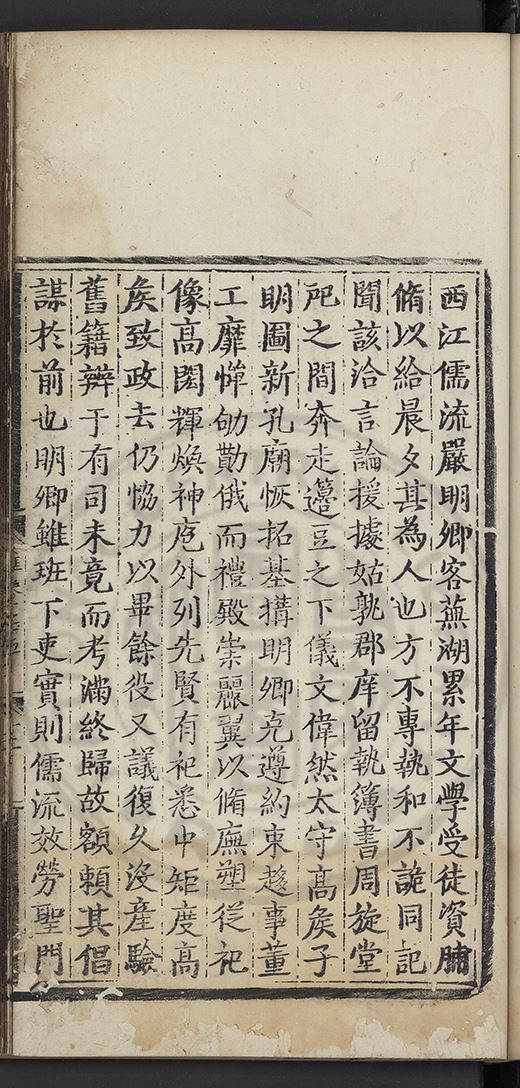 西江儒流嚴明卿客蕪湖累年文學受徒資脯
脩以給晨夕其為人也方不專執和不詭同記
聞該洽言論援據姑孰郡庠留執簿書周旋堂
戺之間奔走籩豆之下儀文偉然太守高矦子
明圖新孔廟恢拓基搆明卿克遵約束趍事董
工靡憚劬勩俄而禮殿崇麗翼以脩廡塑從祀
像高閎輝煥神庖外列先賢有祀悉中矩度高
矦致政去仍恊力以畢餘役又議復久沒產驗
舊籍辨于有司未竟而考滿終歸故額頼其倡
謀於前也明卿雖班下吏實則儒流效勞聖門